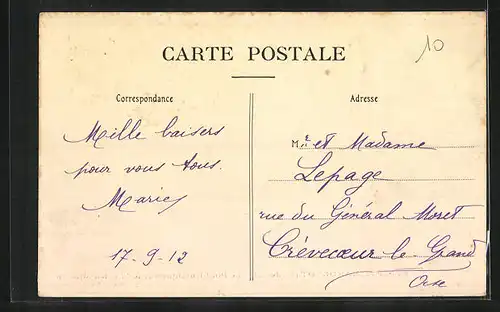 CARTE POSTALE
10
Correspondance
Adresse
Mille baisers
pour vous tous.
Marie
17-9-12
Mr et Madame
Lepage
rue du Général Moret
Crèvecœur le Grand
Oise